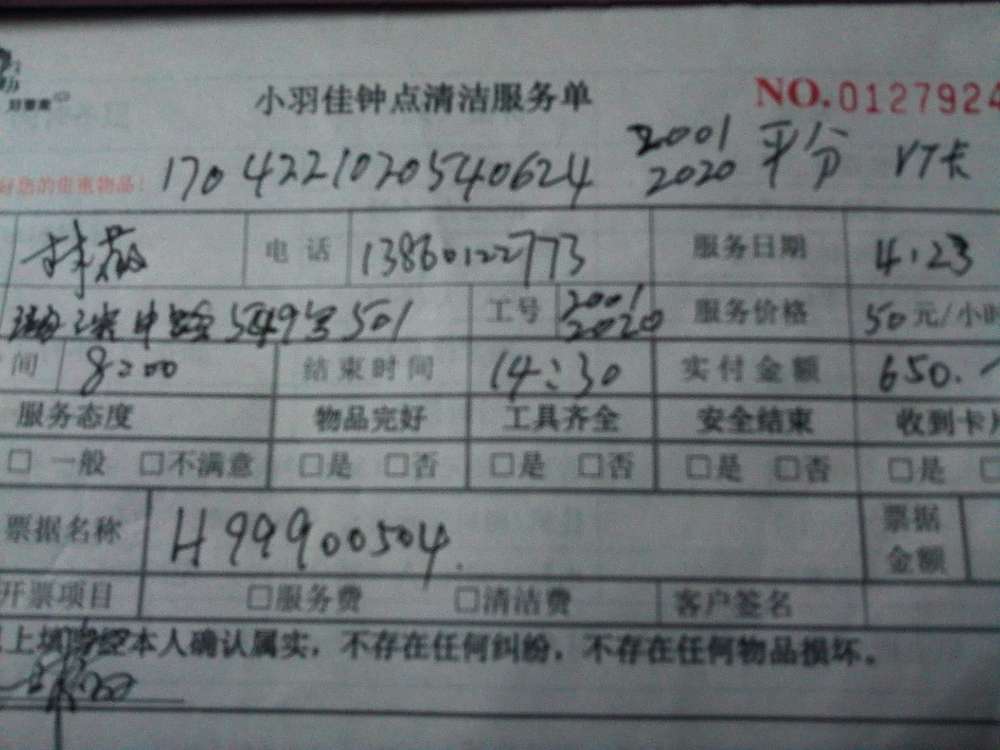 小羽佳钟点清洁服务单 NO.0127924
好您的贵重物品! 1704221020540624 2001 2020 平分 VT卡
电话 13860122773 服务日期 4.23
549号501 工号 2001 2020 服务价格 50元/小时
间 8:00 结束时间 14:30 实付金额 650.
服务态度 物品完好 工具齐全 安全结束 收到卡
□一般 □不满意 □是 □否 □是 □否 □是 □否 □是
票据名称 H99900504 票据金额
开票项目 □服务费 □清洁费 客户签名
上填写经本人确认属实，不存在任何纠纷，不存在任何物品损坏。